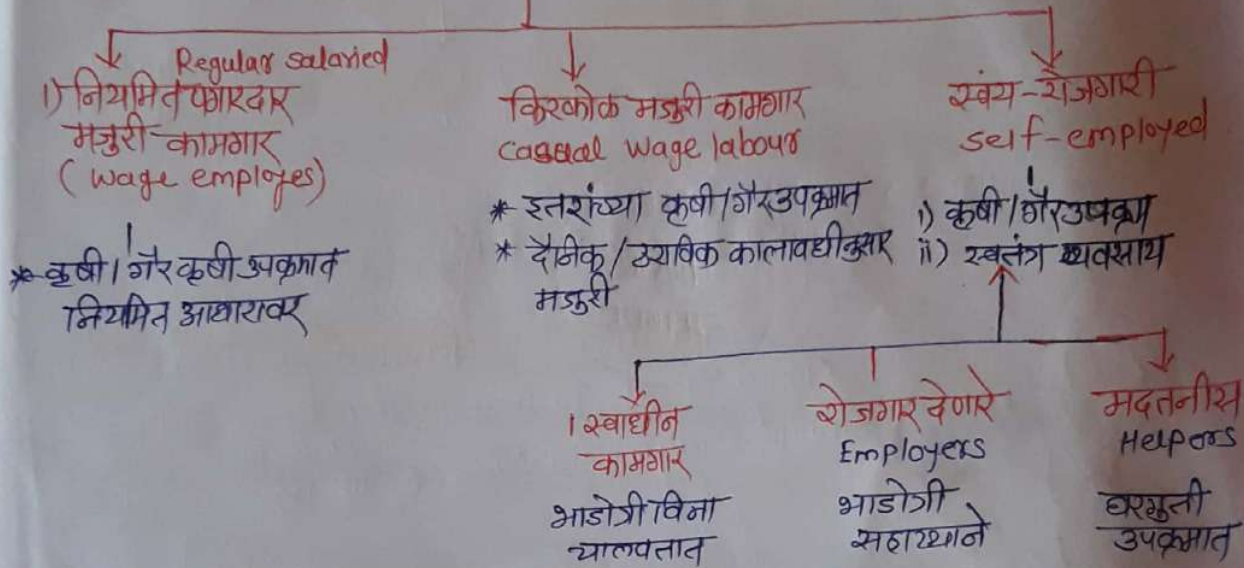 Regular salaried
1) नियमित पगारदार
मजुरी-कामगार
(wage employes)
* कृषी/गैर कृषी उपक्रमात
नियमित आधारावर
किरकोळ मजुरी कामगार
casual wage labour
* इतरांच्या कृषी/गैरउपक्रमात
* दैनिक/ठराविक कालावधीनुसार
मजुरी
स्वंय-रोजगारी
self-employed
i) कृषी/गैरउपक्रम
ii) स्वतंत्र व्यवसाय
। स्वाधीन
कामगार
भाडोत्री विना
चालवतात
रोजगार देणारे
Employers
भाडोत्री
सहाय्याने
मदतनीस
Helpers
घरगुती
उपक्रमात